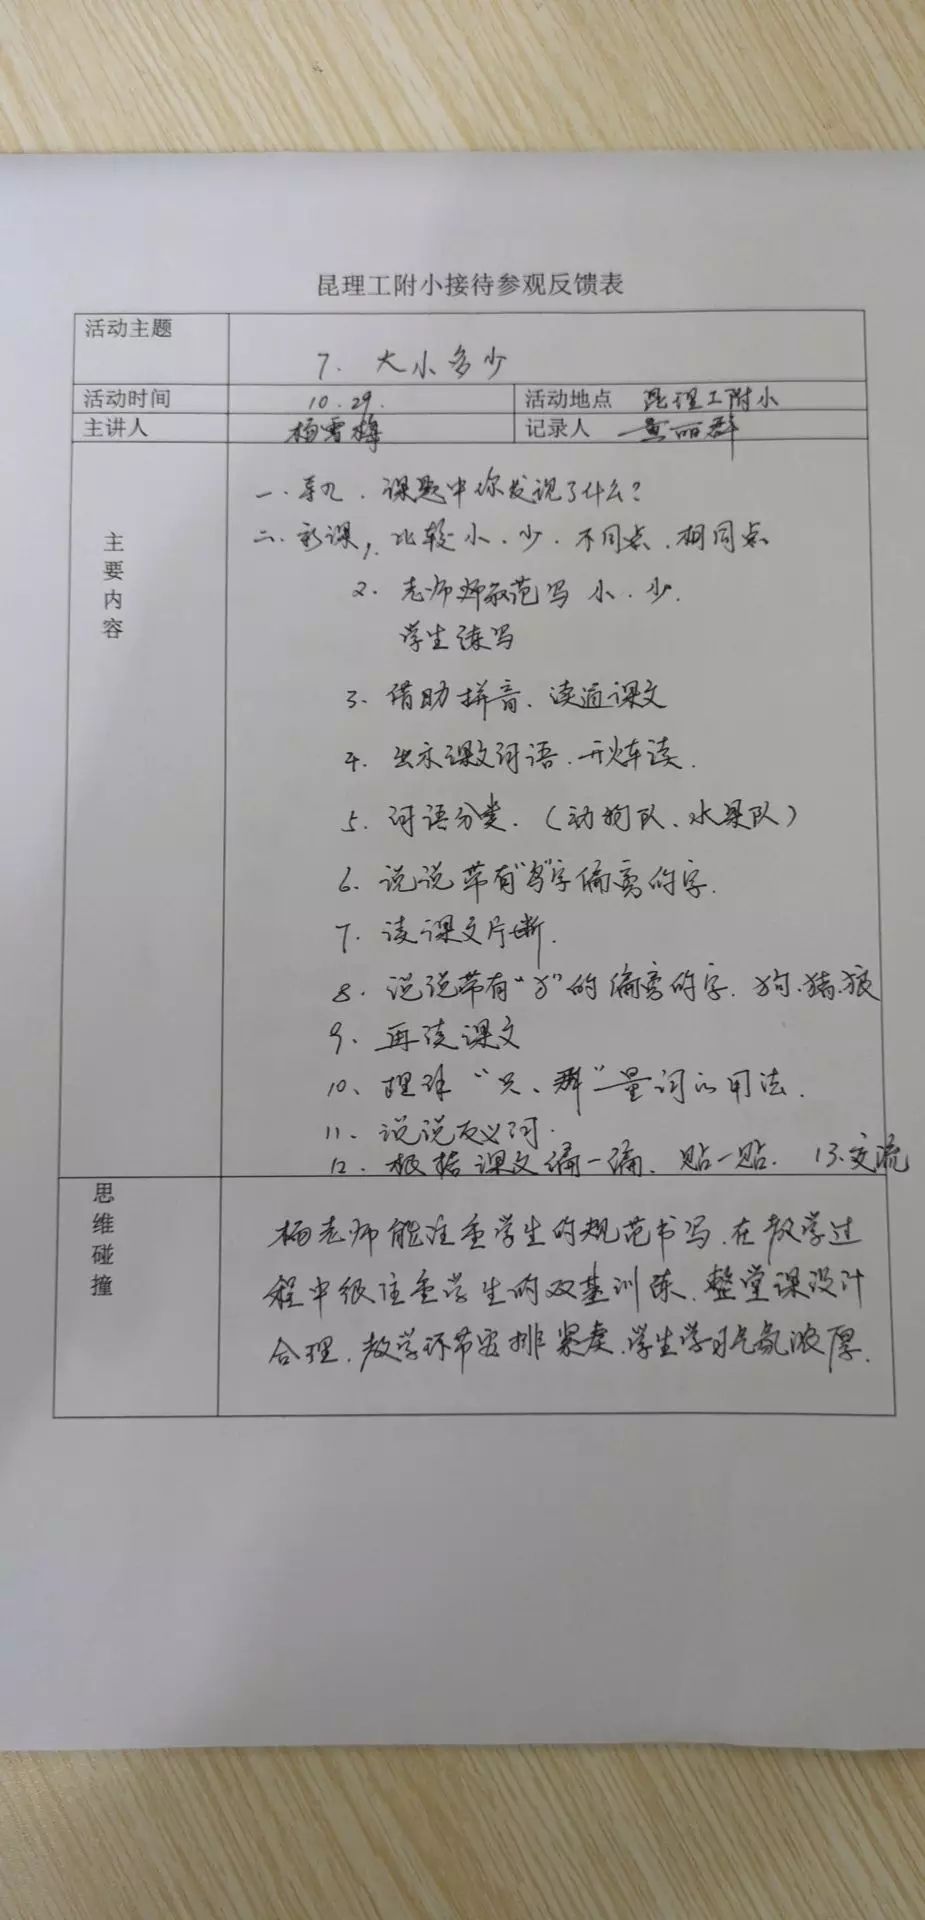 昆理工附小接待参观反馈表
活动主题
7. 大小多少
活动时间 10.29. 活动地点 昆理工附小
主讲人 杨雪梅 记录人 丽群
主要内容
一. 导入. 课题中你发现了什么?
二. 新课, 1. 比较小、少. 不同点、相同点
2. 老师师示范写 小、少.
学生练写
3. 借助拼音、读通课文
4. 出示课文词语. 开火车读.
5. 词语分类. (动物队、水果队)
6. 说说带有"鸟"字偏旁的字.
7. 读课文片断.
8. 说说带有"犭"的偏旁的字. 狗、猪、狼
9. 再读课文
10. 理解 "只、群" 量词的用法.
11. 说说反义词.
12. 根据课文编一编、贴一贴. 13. 交流
思维碰撞
杨老师能注重学生的规范书写. 在教学过
程中很注重学生的双基训练. 整堂课设计
合理. 教学环节安排紧凑. 学生学习气氛浓厚.